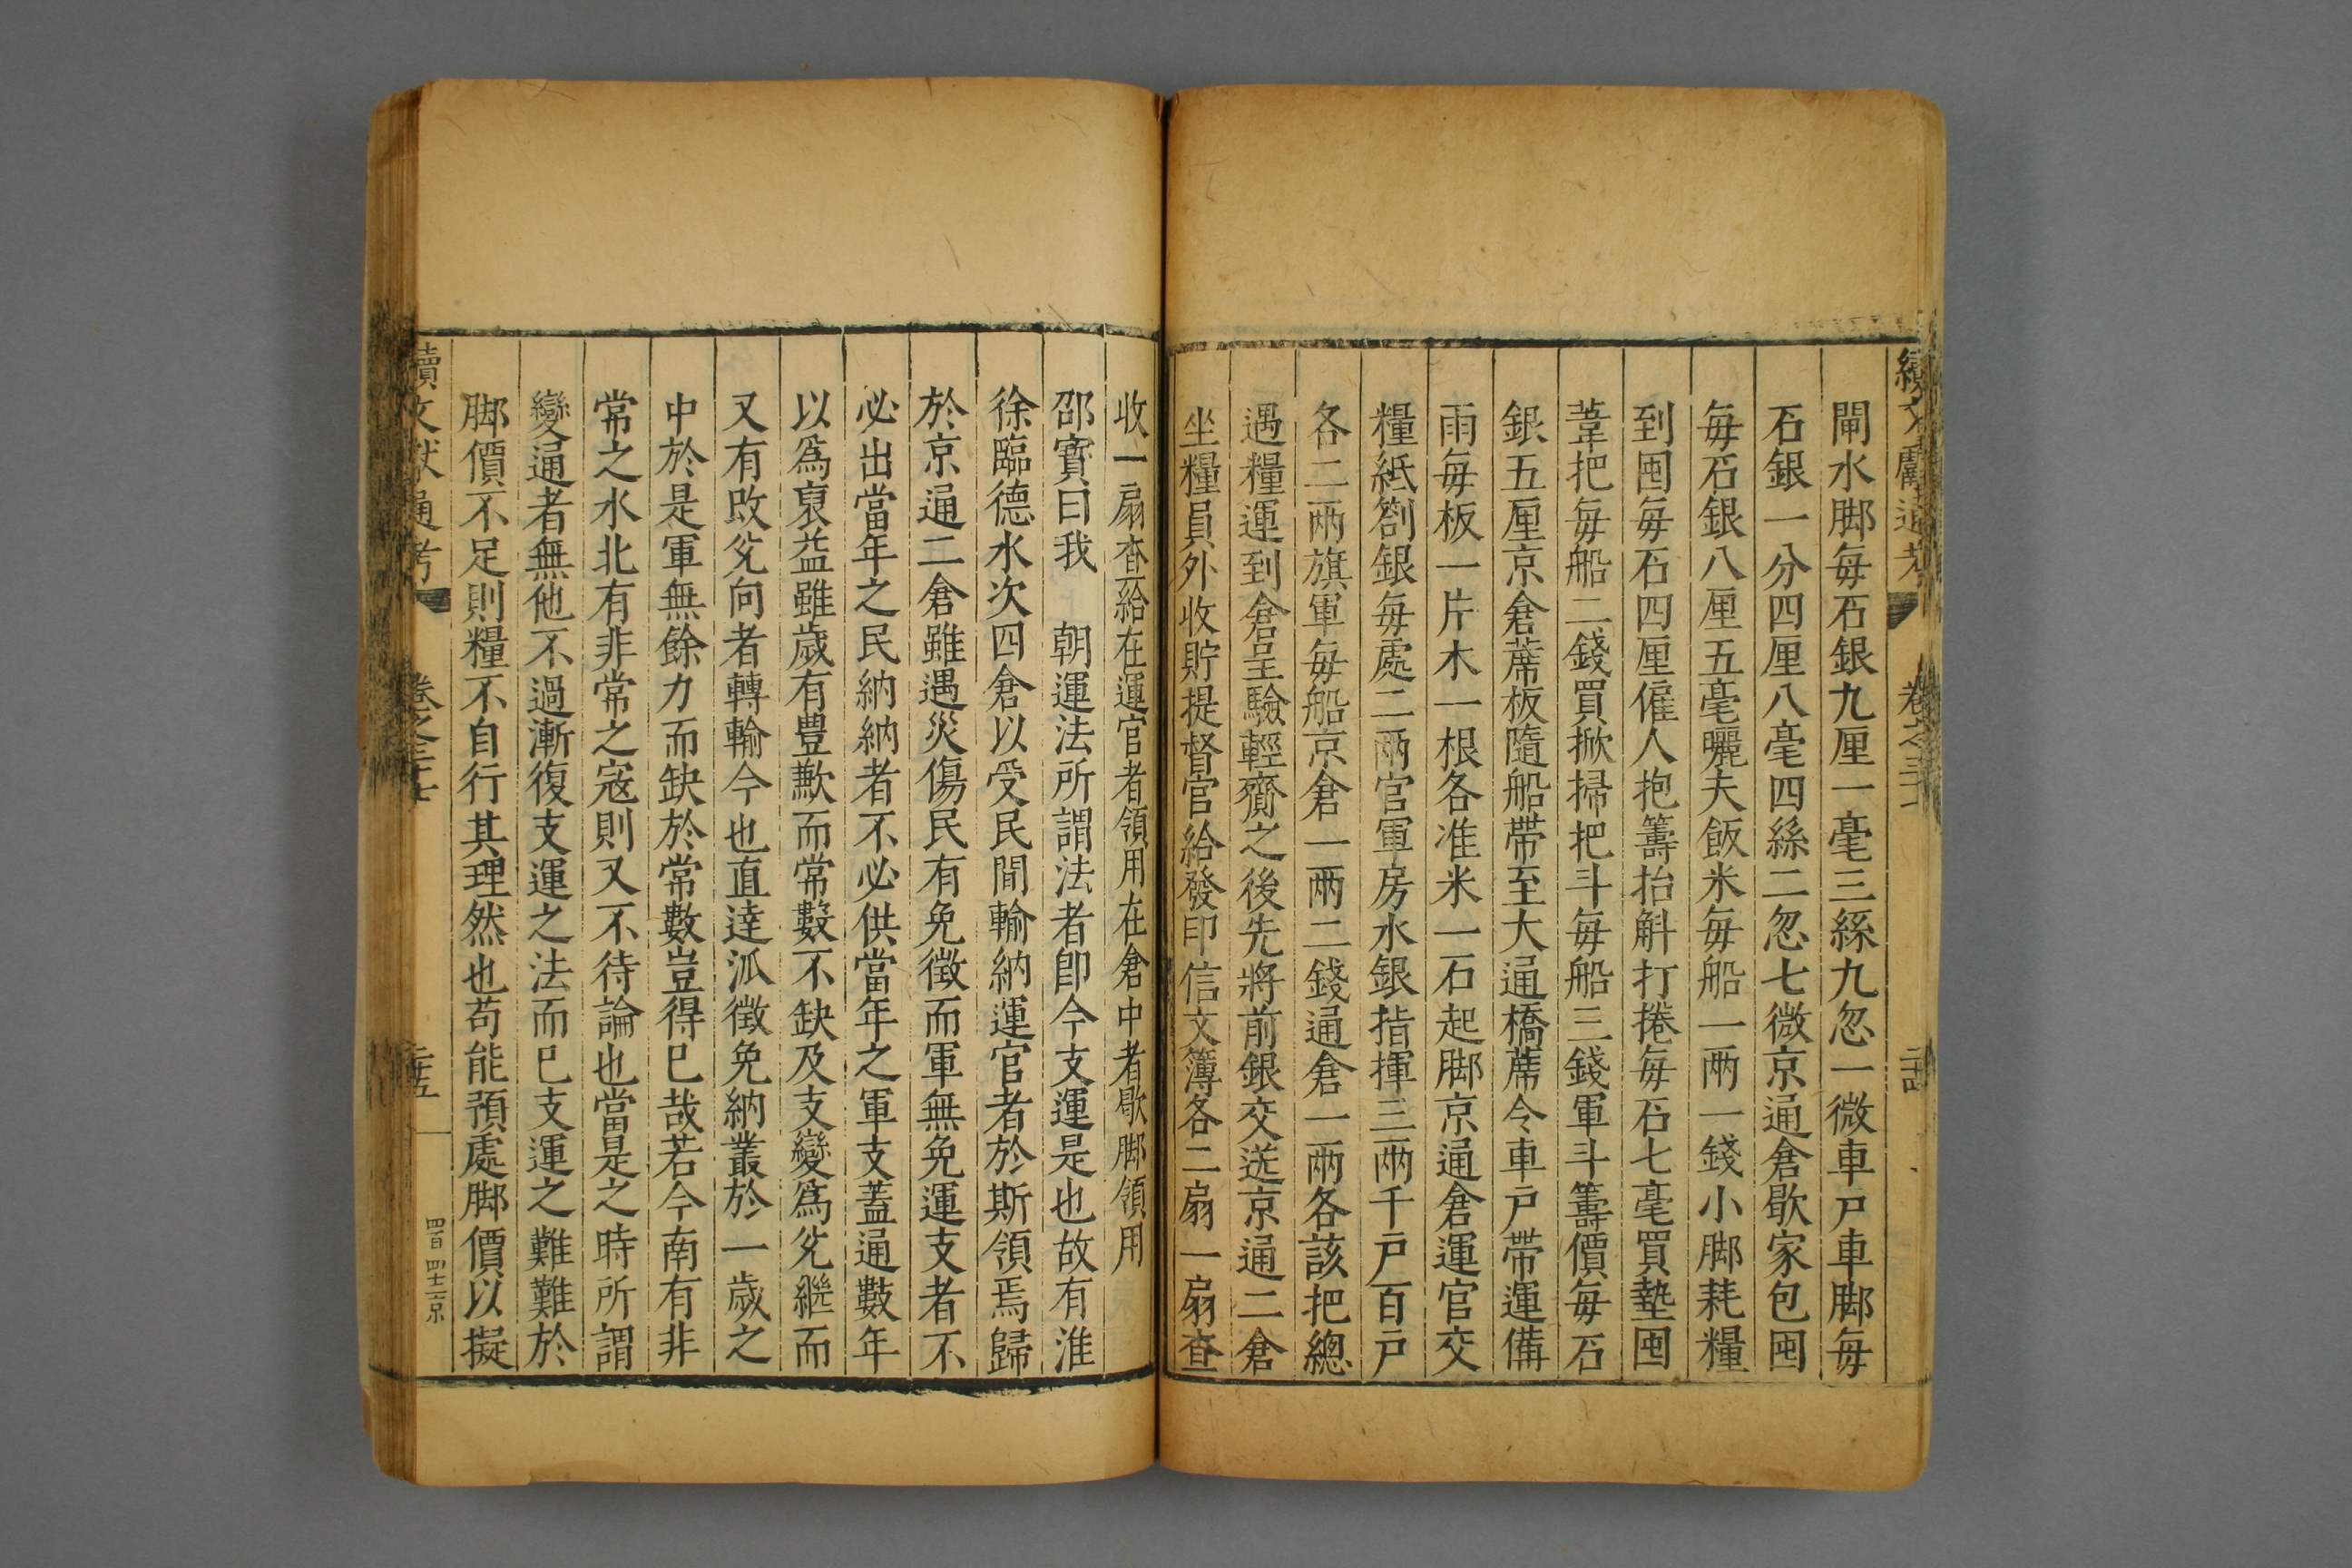 續文獻通考 卷之三十七
閘水脚毎石銀九厘一毫三絲九忽一微車戸車脚毎
石銀一分四厘八毫四絲二忽七微京通倉歇家包囤
毎石銀八厘五毫曬夫飯米毎船一兩一錢小脚耗糧
到囤毎石四厘僱人抱籌抬斛打捲毎石七毫買墊囤
葦把毎船二錢買掀掃把斗毎船三錢軍斗籌價毎石
銀五厘京倉蓆板隨船帶至大通橋蓆令車戸帶運備
雨毎板一片木一根各准米一石起脚京通倉運官交
糧紙劄銀毎處二兩官軍房水銀指揮三兩千戸百戸
各二兩旗軍毎船京倉一兩二錢通倉一兩各該把總
遇糧運到倉呈驗輕齎之後先將前銀交送京通二倉
坐糧員外收貯提督官給發印信文簿各二扇一扇查
收一扇查給在運官者領用在倉中者歇脚領用
邵寶曰我 朝運法所謂法者卽今支運是也故有淮
徐臨德水次四倉以受民間輸納運官者於斯領焉歸
於京通二倉雖遇災傷民有免徵而軍無免運支者不
必出當年之民納納者不必供當年之軍支蓋通數年
以爲裒益雖歲有豊歉而常數不缺及支變爲兊繼而
又有攺兊向者轉輸今也直達泒徵免納叢於一歲之
中於是軍無餘力而缺於常數豈得巳哉若今南有非
常之水北有非常之寇則又不待論也當是之時所謂
變通者無他不過漸復支運之法而巳支運之難難於
脚價不足則糧不自行其理然也苟能預處脚價以擬
續文獻通考 卷之三十七 二十五